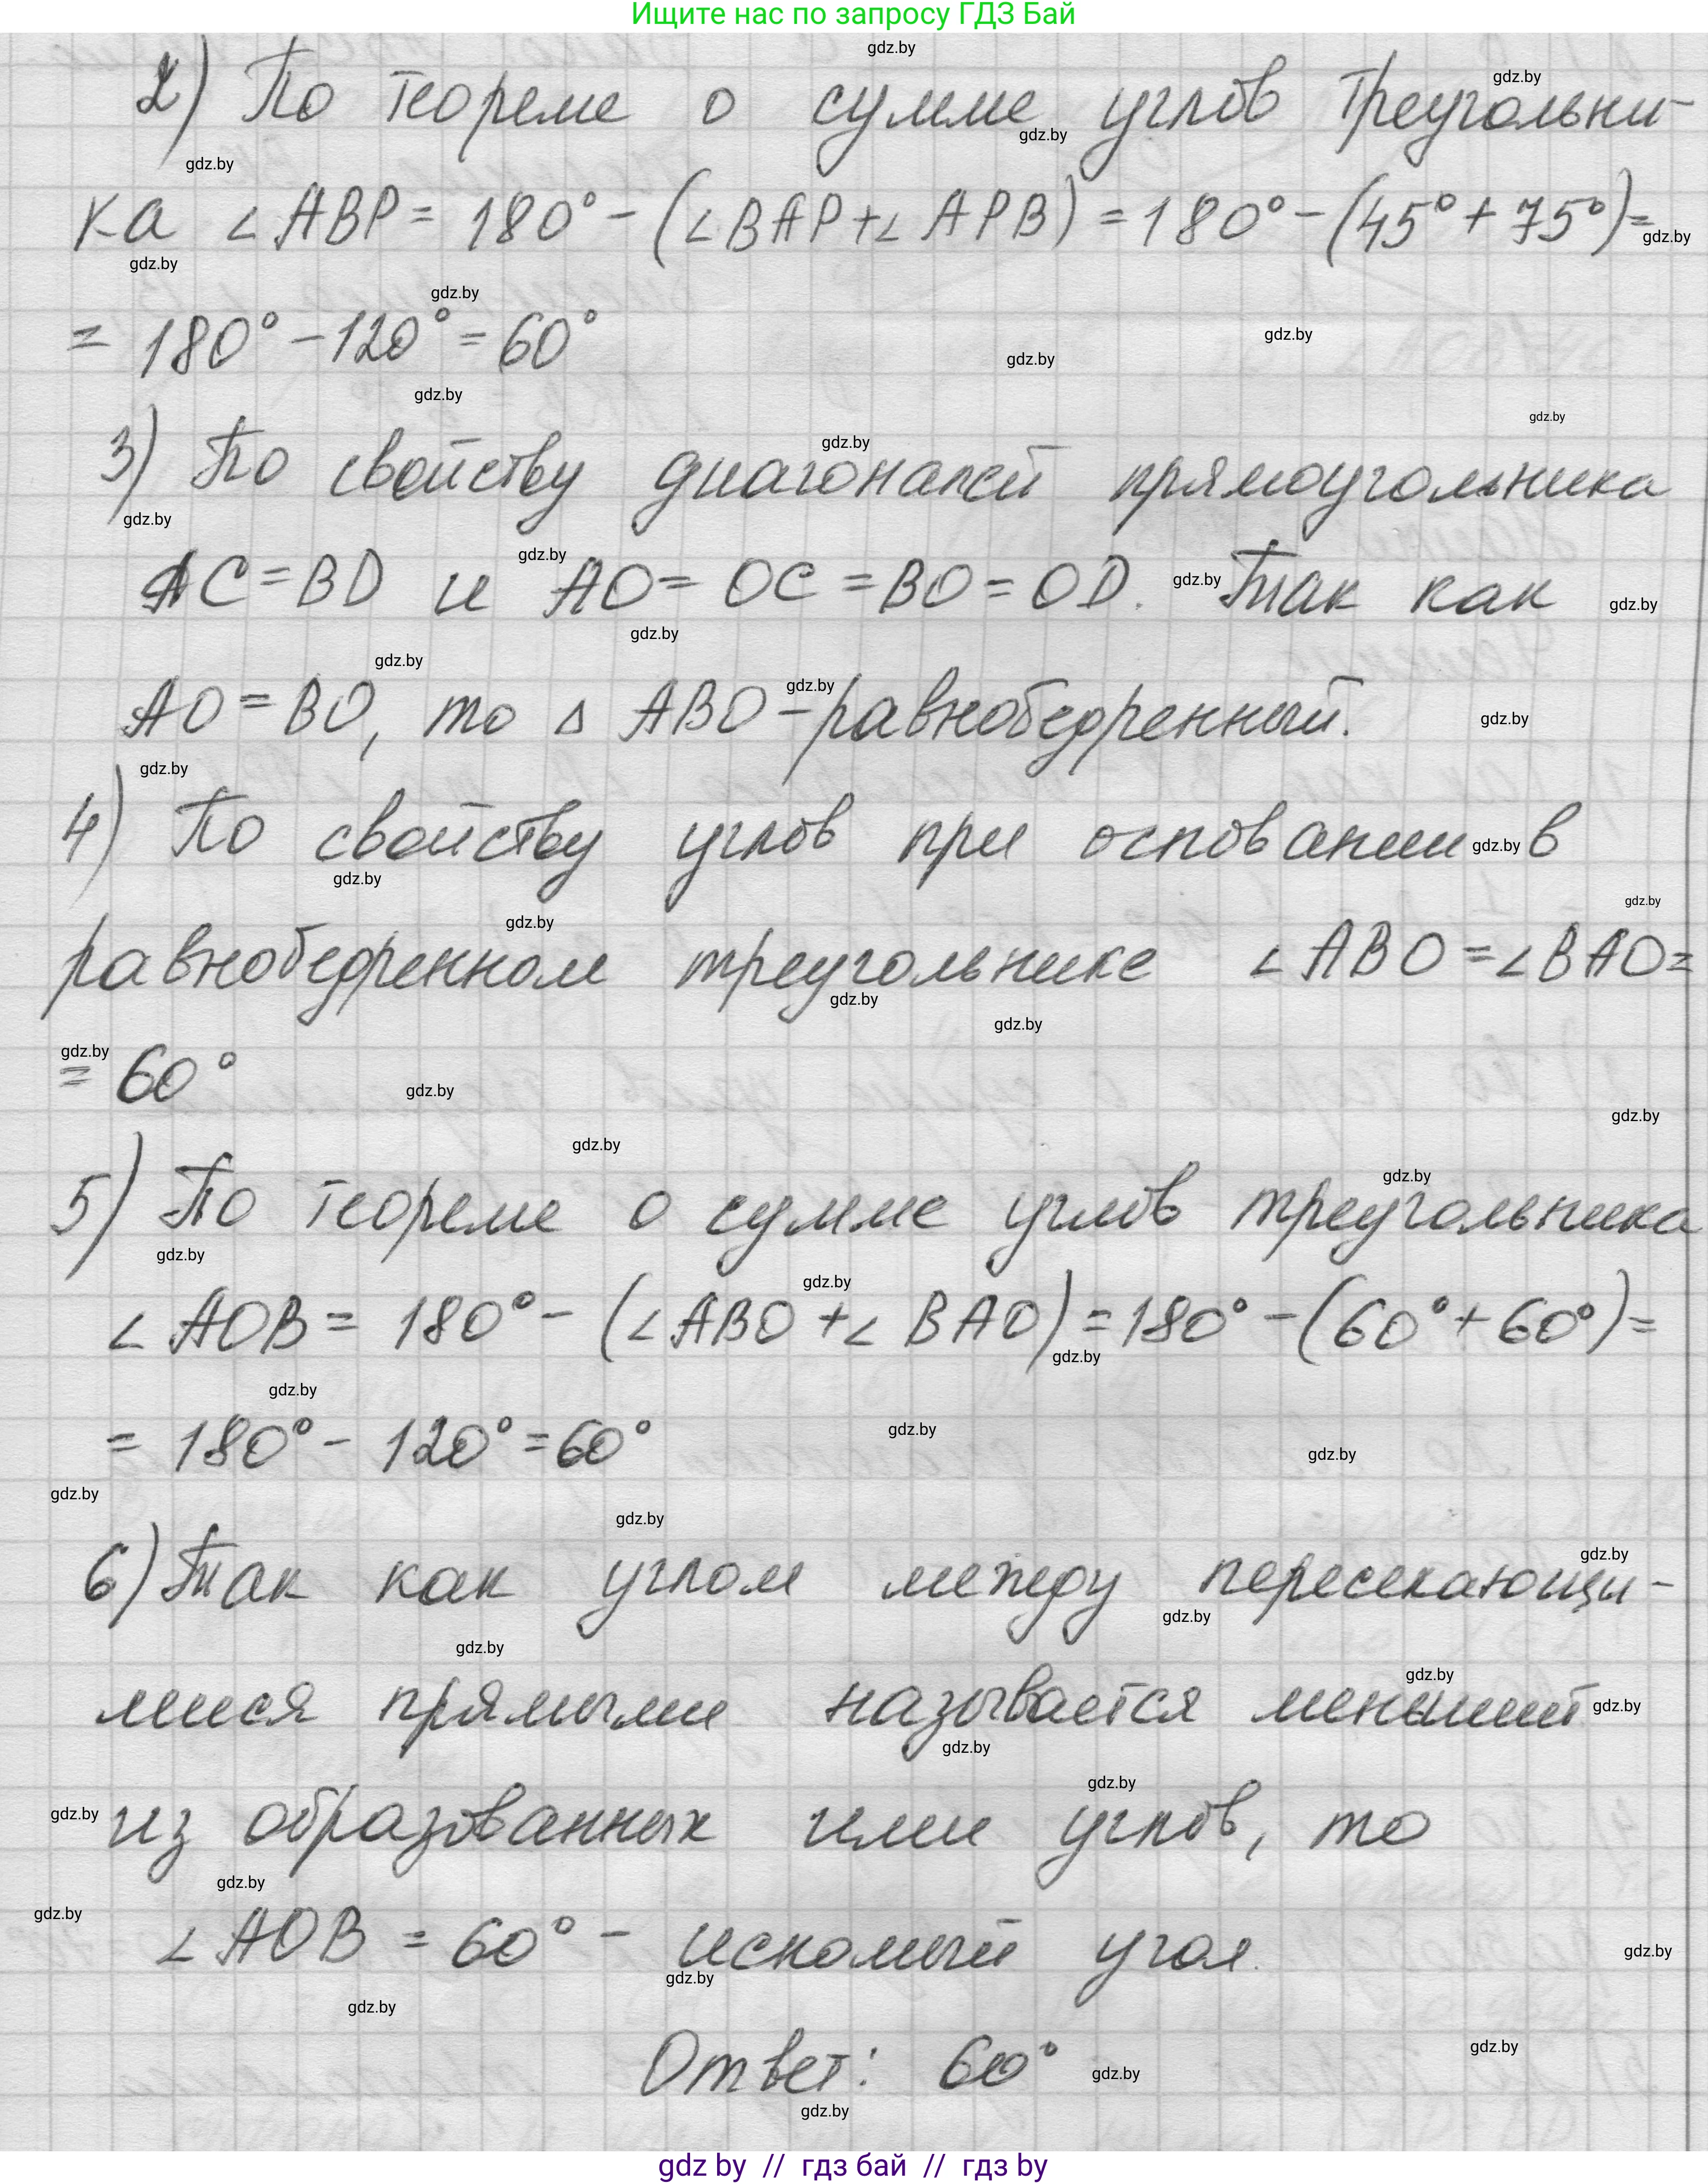 Ищите нас по запросу ГДЗ Бай
2) По теореме о сумме углов треугольни-
ка ∠ABP = 180° - (∠BAP + ∠APB) = 180° - (45° + 75°) =
= 180° - 120° = 60°
3) По свойству диагоналей прямоугольника
AC = BD и AO = OC = BO = OD. Так как
AO = BO, то Δ ABO - равнобедренный.
4) По свойству углов при основании в
равнобедренном треугольнике ∠ABO = ∠BAO =
= 60°
5) По теореме о сумме углов треугольника
∠AOB = 180° - (∠ABO + ∠BAO) = 180° - (60° + 60°) =
= 180° - 120° = 60°
6) Так как углом между пересекающи-
мися прямыми называется меньший
из образованных ими углов, то
∠AOB = 60° - искомый угол.
Ответ: 60°
gdz by // гдз бай // гдз by